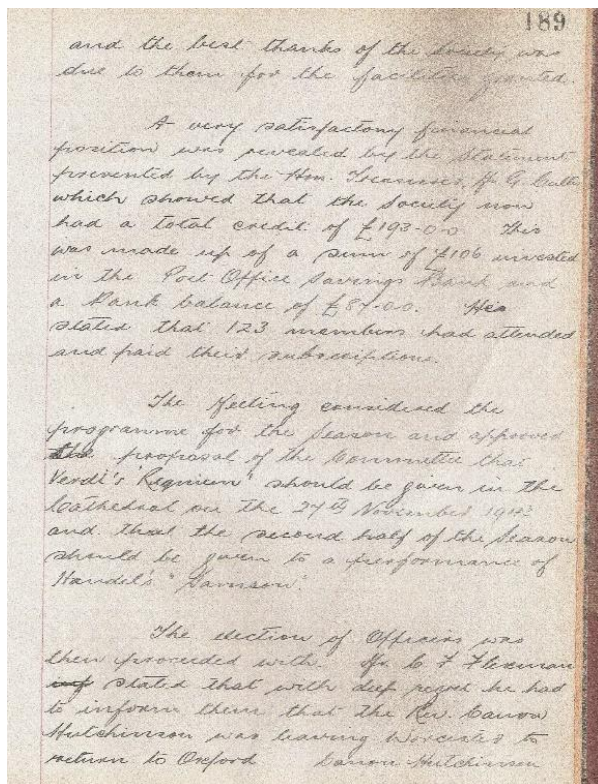 189
and the best thanks of the Society was
due to them for the facilities granted.
A very satisfactory financial
position was revealed by the Statement
presented by the Hon. Treasurer, Mr G.
which showed that the Society now
had a total credit of £193-0-0 This
was made up of a sum of £106 invested
in the Post Office Savings Bank and
a Bank balance of £87-0-0. He
stated that 123 members had attended
and paid their subscriptions.
The Meeting considered the
programme for the Season and approved
the proposal of the Committee that
Verdi's "Requiem" should be given in the
Cathedral on the November
and that the second half of the Season
should be given to a performance of
Handel's "Samson".
The election of Officers was
then proceeded with. Mr C F Flexman
stated that with deep regret he had
to inform them that the Rev. Canon
Hutchinson was leaving Worcester to
return to Oxford Canon Hutchinson